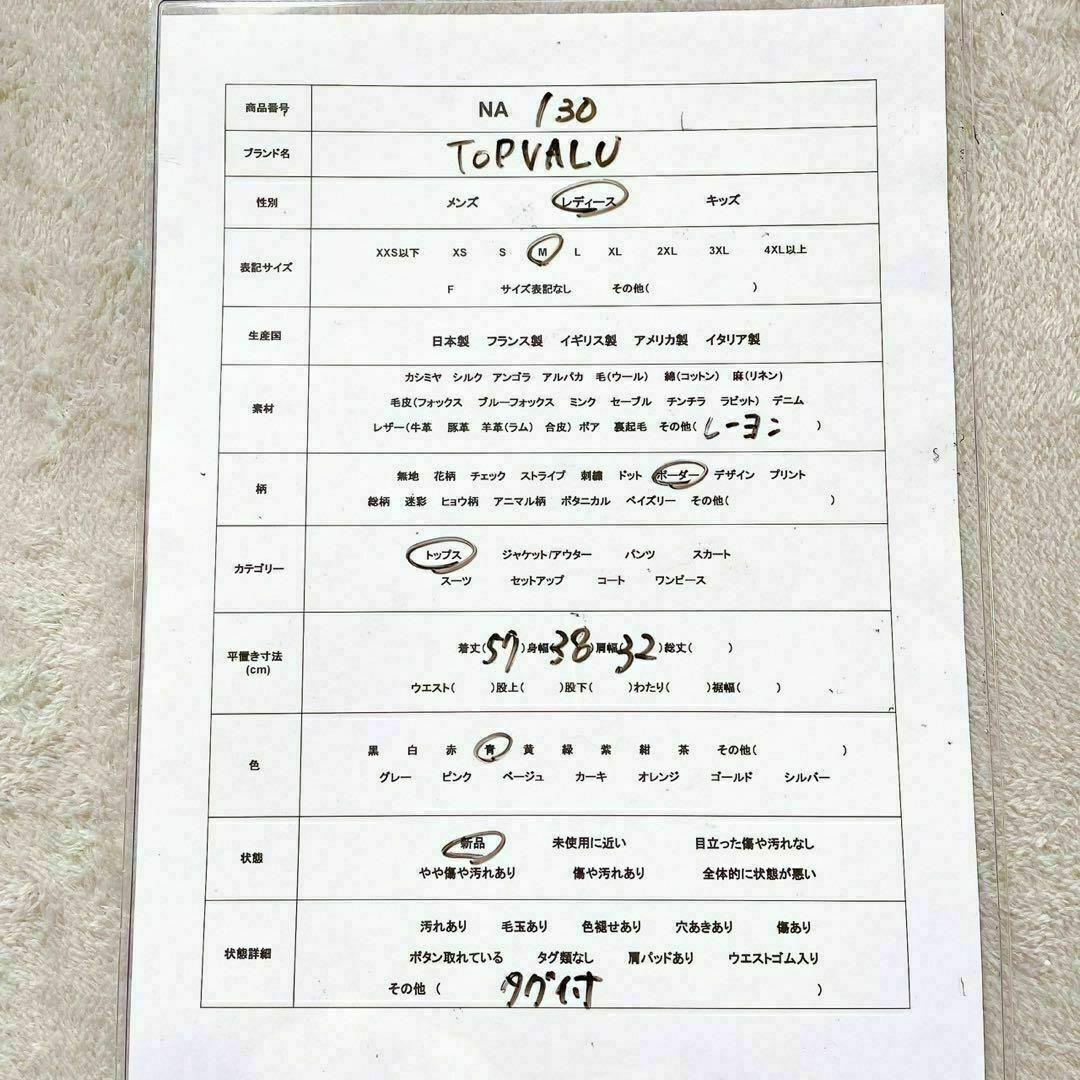 商品番号 NA 130
ブランド名 TOPVALU
性別 メンズ レディース キッズ
表記サイズ
XXS以下 XS S M L XL 2XL 3XL 4XL以上
F サイズ表記なし その他( )
生産国 日本製 フランス製 イギリス製 アメリカ製 イタリア製
素材
カシミヤ シルク アンゴラ アルパカ 毛(ウール) 綿(コットン) 麻(リネン)
毛皮(フォックス ブルーフォックス ミンク セーブル チンチラ ラビット) デニム
レザー(牛革 豚革 羊革(ラム) 合皮) ボア 裏起毛 その他(レーヨン)
柄
無地 花柄 チェック ストライプ 刺繍 ドット ボーダー デザイン プリント
総柄 迷彩 ヒョウ柄 アニマル柄 ボタニカル ペイズリー その他( )
カテゴリー
トップス ジャケット/アウター パンツ スカート
スーツ セットアップ コート ワンピース
平置き寸法
(cm)
着丈(57)身幅(38)肩幅(32)総丈( )
ウエスト( )股上( )股下( )わたり( )裾幅( )
色
黒 白 赤 青 黄 緑 紫 紺 茶 その他( )
グレー ピンク ベージュ カーキ オレンジ ゴールド シルバー
状態
新品 未使用に近い 目立った傷や汚れなし
やや傷や汚れあり 傷や汚れあり 全体的に状態が悪い
状態詳細
汚れあり 毛玉あり 色褪せあり 穴あきあり 傷あり
ボタン取れている タグ類なし 肩パッドあり ウエストゴム入り
その他 (タグ付)